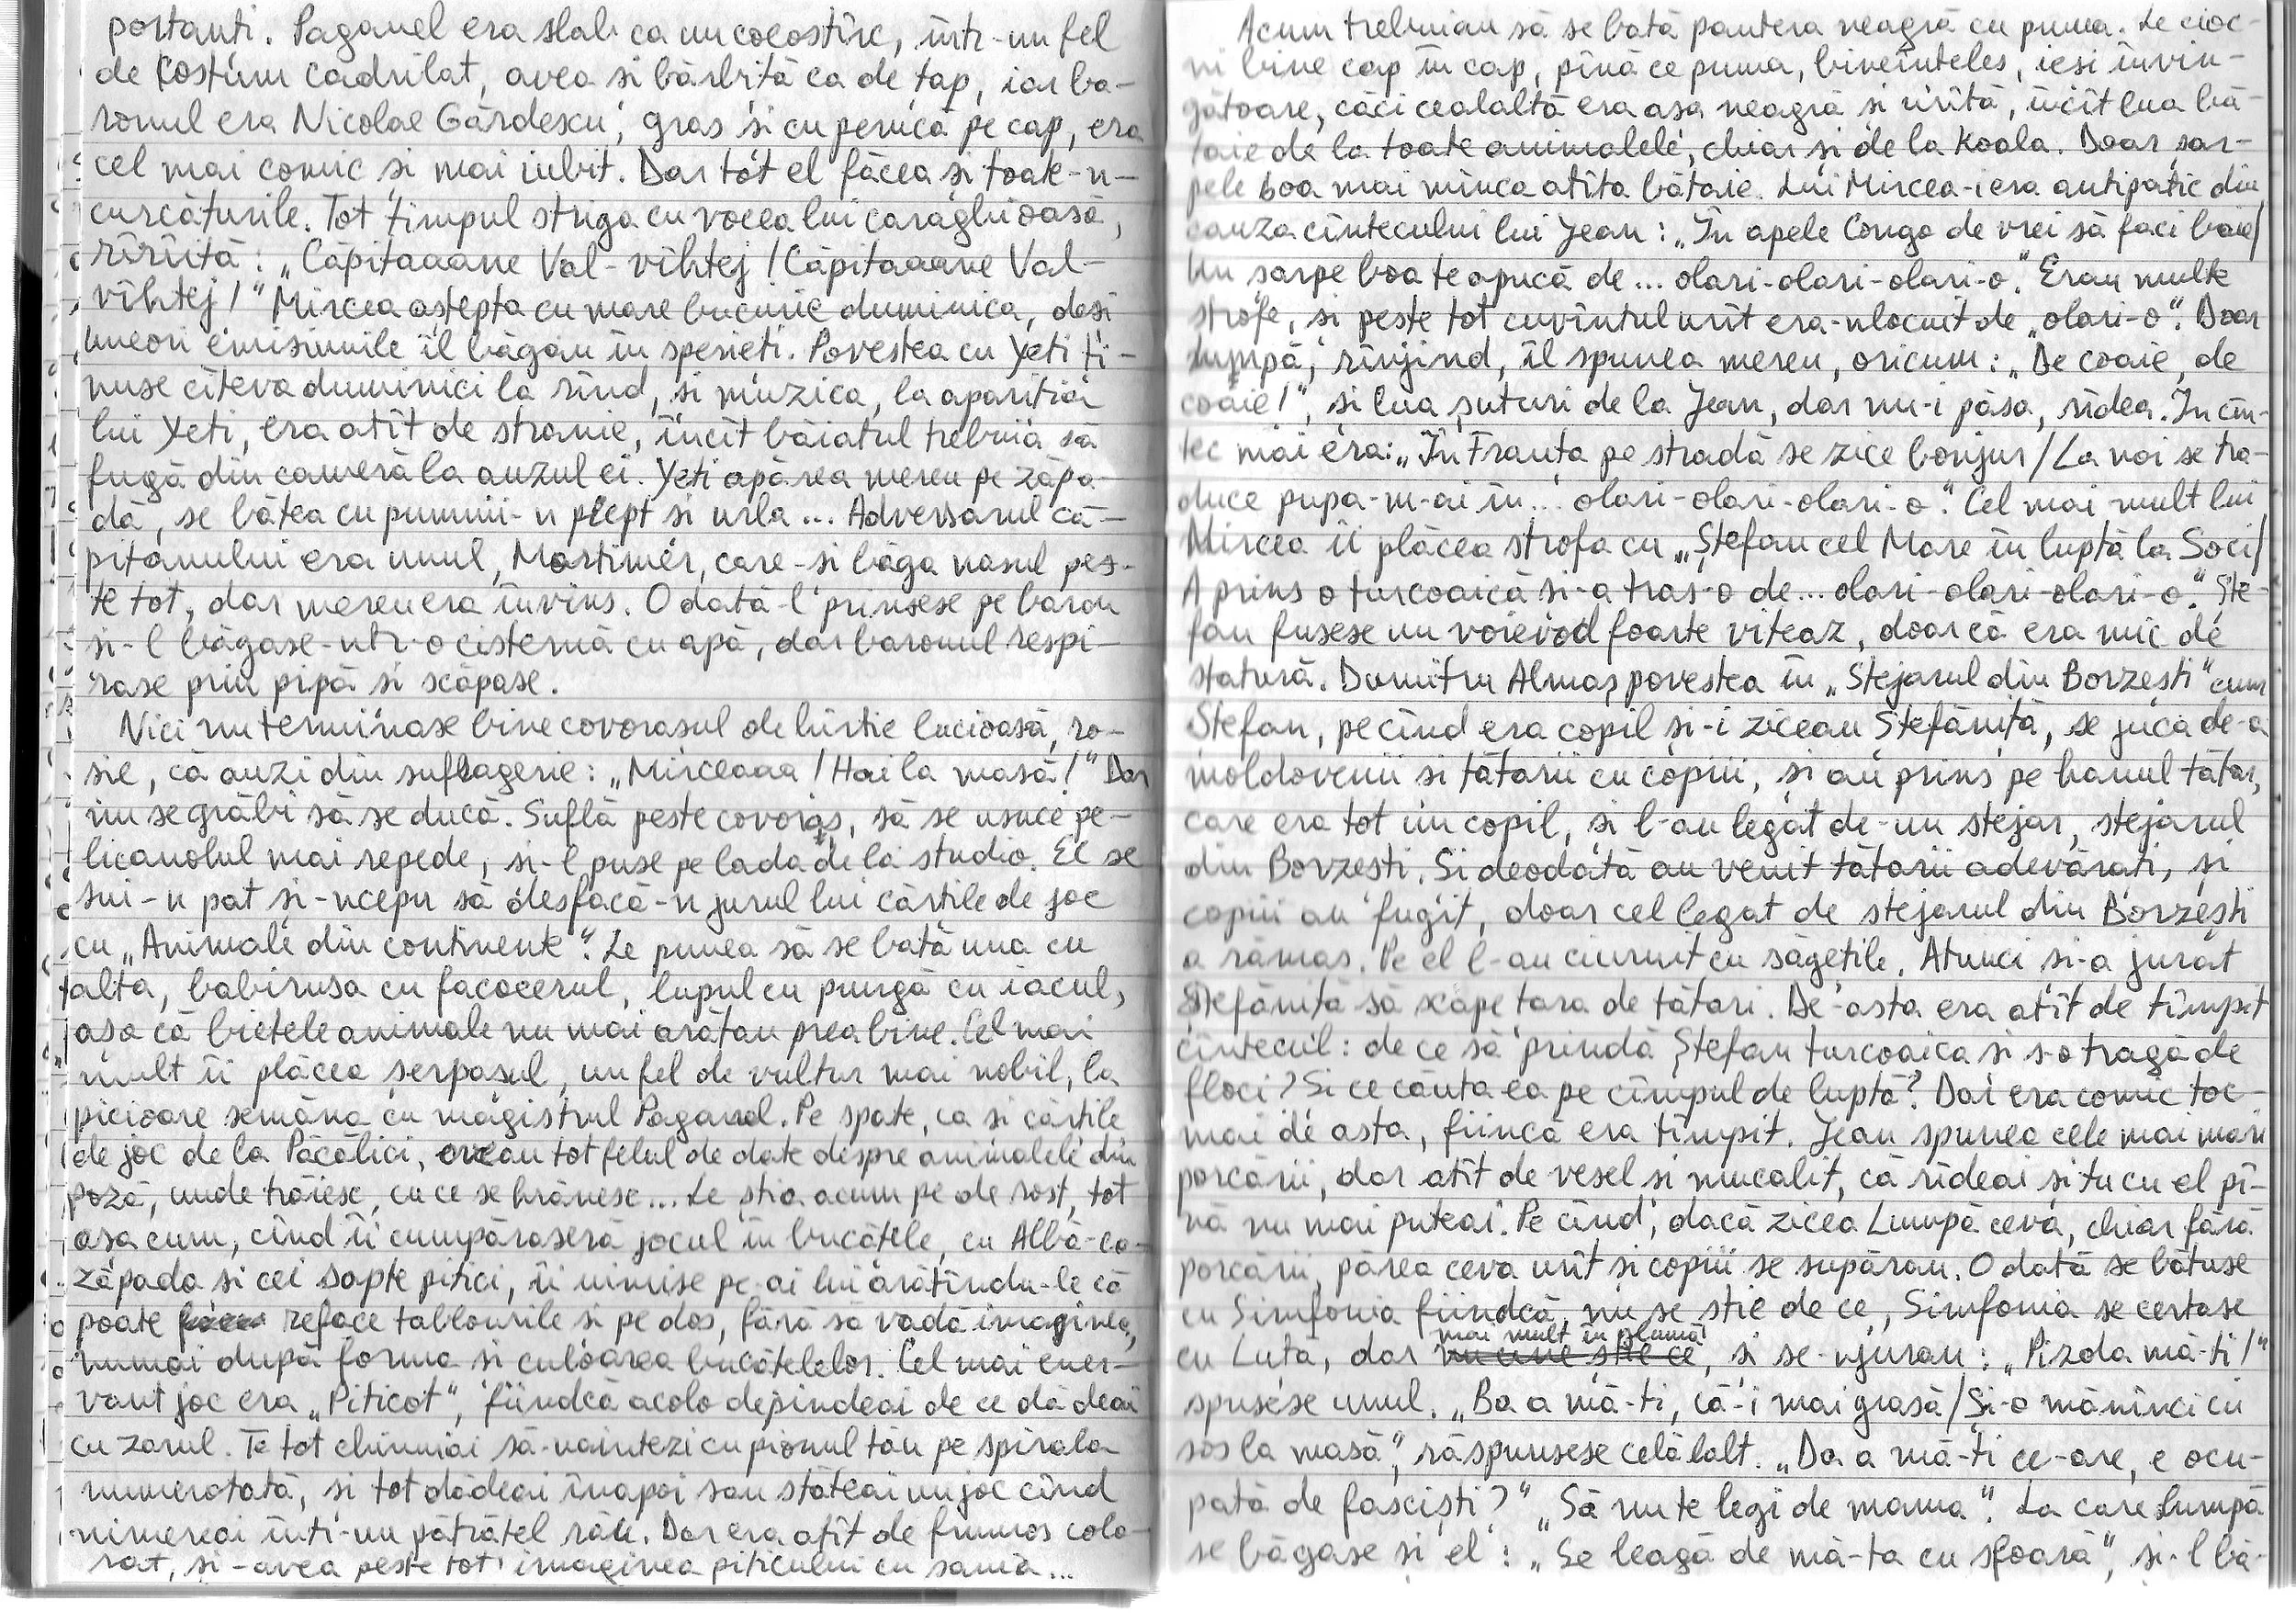 portanti. Paganel era slab ca un cocostîrc, într-un fel
de costum cadrilat, avea si bărbită ca de tap, iar ba-
ronul era Nicolae Gărdescu, gras si cu perucă pe cap, era
cel mai comic si mai iubit. Dar tot el făcea si toate-n-
curcăturile. Tot timpul striga cu vocea lui caraghioasă,
rîrîită: „Căpitaaane Val-vîhtej! Căpitaaane Val-
vîhtej!" Mircea aștepta cu mare bucurie duminica, desi
uneori emisiunile îl băgau în sperieti. Povestea cu Yeti ti-
nuse cîteva duminici la rînd, si muzica, la aparitia
lui Yeti, era atît de stranie, încît băiatul trebuia să
fugă din cameră la auzul ei. Yeti apărea mereu pe zăpa-
dă, se bătea cu pumnii-n piept si urla... Adversarul că-
pitanului era unul, Mortimer, care-si băga nasul pes-
te tot, dar mereu era învins. Odată-l prinsese pe baron
si-l băgase-ntr-o cisternă cu apă, dar baronul respi-
rase prin pipă si scăpase.
Nici nu terminase bine covorasul de hîrtie lucioasă, ro-
sie, că auzi din sufragerie: „Mirceaaa! Hai la masă!" Dar
nu se grăbi să se ducă. Suflă peste covoraș, să se usuce pe-
licanolul mai repede, si-l puse pe lada de la studio. El se
sui-n pat și-ncepu să desfacă-n jurul lui cărtile de joc
cu „Animale din continente". Le punea să se bată una cu
alta, babirusa cu facocerul, lupul cu pungă cu iacul,
așa că bietele animale nu mai arătau prea bine. Cel mai
mult îi plăcea serpașul, un fel de vultur mai nobil, la
picioare semăna cu magistrul Paganel. Pe spate, ca si cărtile
de joc de la Păcălici, aveau tot felul de date despre animalele din
poză, unde trăiesc, cu ce se hrănesc... Le știa acum pe de rost, tot
asa cum, cînd îi cumpăraseră jocul în bucătele, cu Albă-ca-
zăpada si cei sapte pitici, îi uimise pe-ai lui arătîndu-le că
poate reface tablourile si pe dos, fără să vadă imaginea,
numai după forma si culoarea bucătelelor. Cel mai ener-
vant joc era „Piticot", fiindcă acolo depindeai de ce dădeai
cu zarul. Te tot chinuiai să-naintezi cu pionul tău pe spirala
numerotată, si tot dădeai înapoi sau stăteai un joc cînd
nimereai într-un pătrătel rău. Dar era atît de frumos colo-
rat, si-avea peste tot imaginea piticului cu sania...
Acum trebuiau să se bată pantera neagră cu puma. Le cioc-
ni bine cap în cap, pînă ce puma, bineînteles, iesi învin-
gătoare, căci cealaltă era asa neagră si urîtă, încît lua bă-
taie de la toate animalele, chiar și de la koala. Doar sar-
pele boa mai mînca atîta bătaie. Lui Mircea-i era antipatic din
cauza cîntecului lui Jean: „În apele Congo de vrei să faci baie/
Un sarpe boa te apucă de... olari-olari-olari-o". Erau multe
strofe, si peste tot cuvîntul urît era-nlocuit de „olari-o". Doar
Lumpă, rînjind, îl spunea mereu, oricum: „De coaie, de
coaie!", si lua șuturi de la Jean, dar nu-i păsa, rîdea. În cîn-
tec mai era: „În Franta pe stradă se zice bonjur/La noi se tra-
duce pupa-m-ai în... olari-olari-olari-o". Cel mai mult lui
Mircea îi plăcea strofa cu „Ștefan cel Mare în luptă la Soci/
A prins o turcoaică si-a tras-o de... olari-olari-olari-o". Ște-
fan fusese un voievod foarte viteaz, doar că era mic de
statură. Dumitru Almaș povestea în „Stejarul din Borzesti" cum
Stefan, pe cînd era copil și-i ziceau Ștefăniță, se juca de-a
moldovenii si tătarii cu copiii, și au prins pe hanul tătar,
care era tot un copil, si l-au legat de-un stejar, stejarul
din Borzesti. Si deodată au venit tătarii adevărati, și
copiii au fugit, doar cel legat de stejarul din Borzești
a rămas. Pe el l-au ciuruit cu săgetile. Atunci si-a jurat
Stefănită să scape tara de tătari. De-asta era atît de tîmpit
cîntecul: de ce să prindă Ștefan turcoaica si s-o tragă de
floci? Si ce căuta ea pe cîmpul de luptă? Dar era comic toc-
mai de asta, fiincă era tîmpit. Jean spunea cele mai mari
porcării, dar atît de vesel si mucalit, că rîdeai și tu cu el pî-
nă nu mai puteai. Pe cînd, dacă zicea Lumpă ceva, chiar fără
porcării, părea ceva urît si copiii se supărau. Odată se bătuse
cu Simfonia fiindcă, nu se stie de ce, Simfonia se certase
cu Luța, dar mai mult în glumă, și se-njurau: „Pizda mă-ti!"
spusese unul. „Ba a mă-ti, că-i mai grasă/Si-o mănînci cu
sos la masă", răspunsese celălalt. „Da a mă-ti ce-are, e ocu-
pată de fasciști?" „Să nu te legi de mama". La care Lumpă
se băgase și el: „Se leagă de mă-ta cu sfoară", și-l bă-